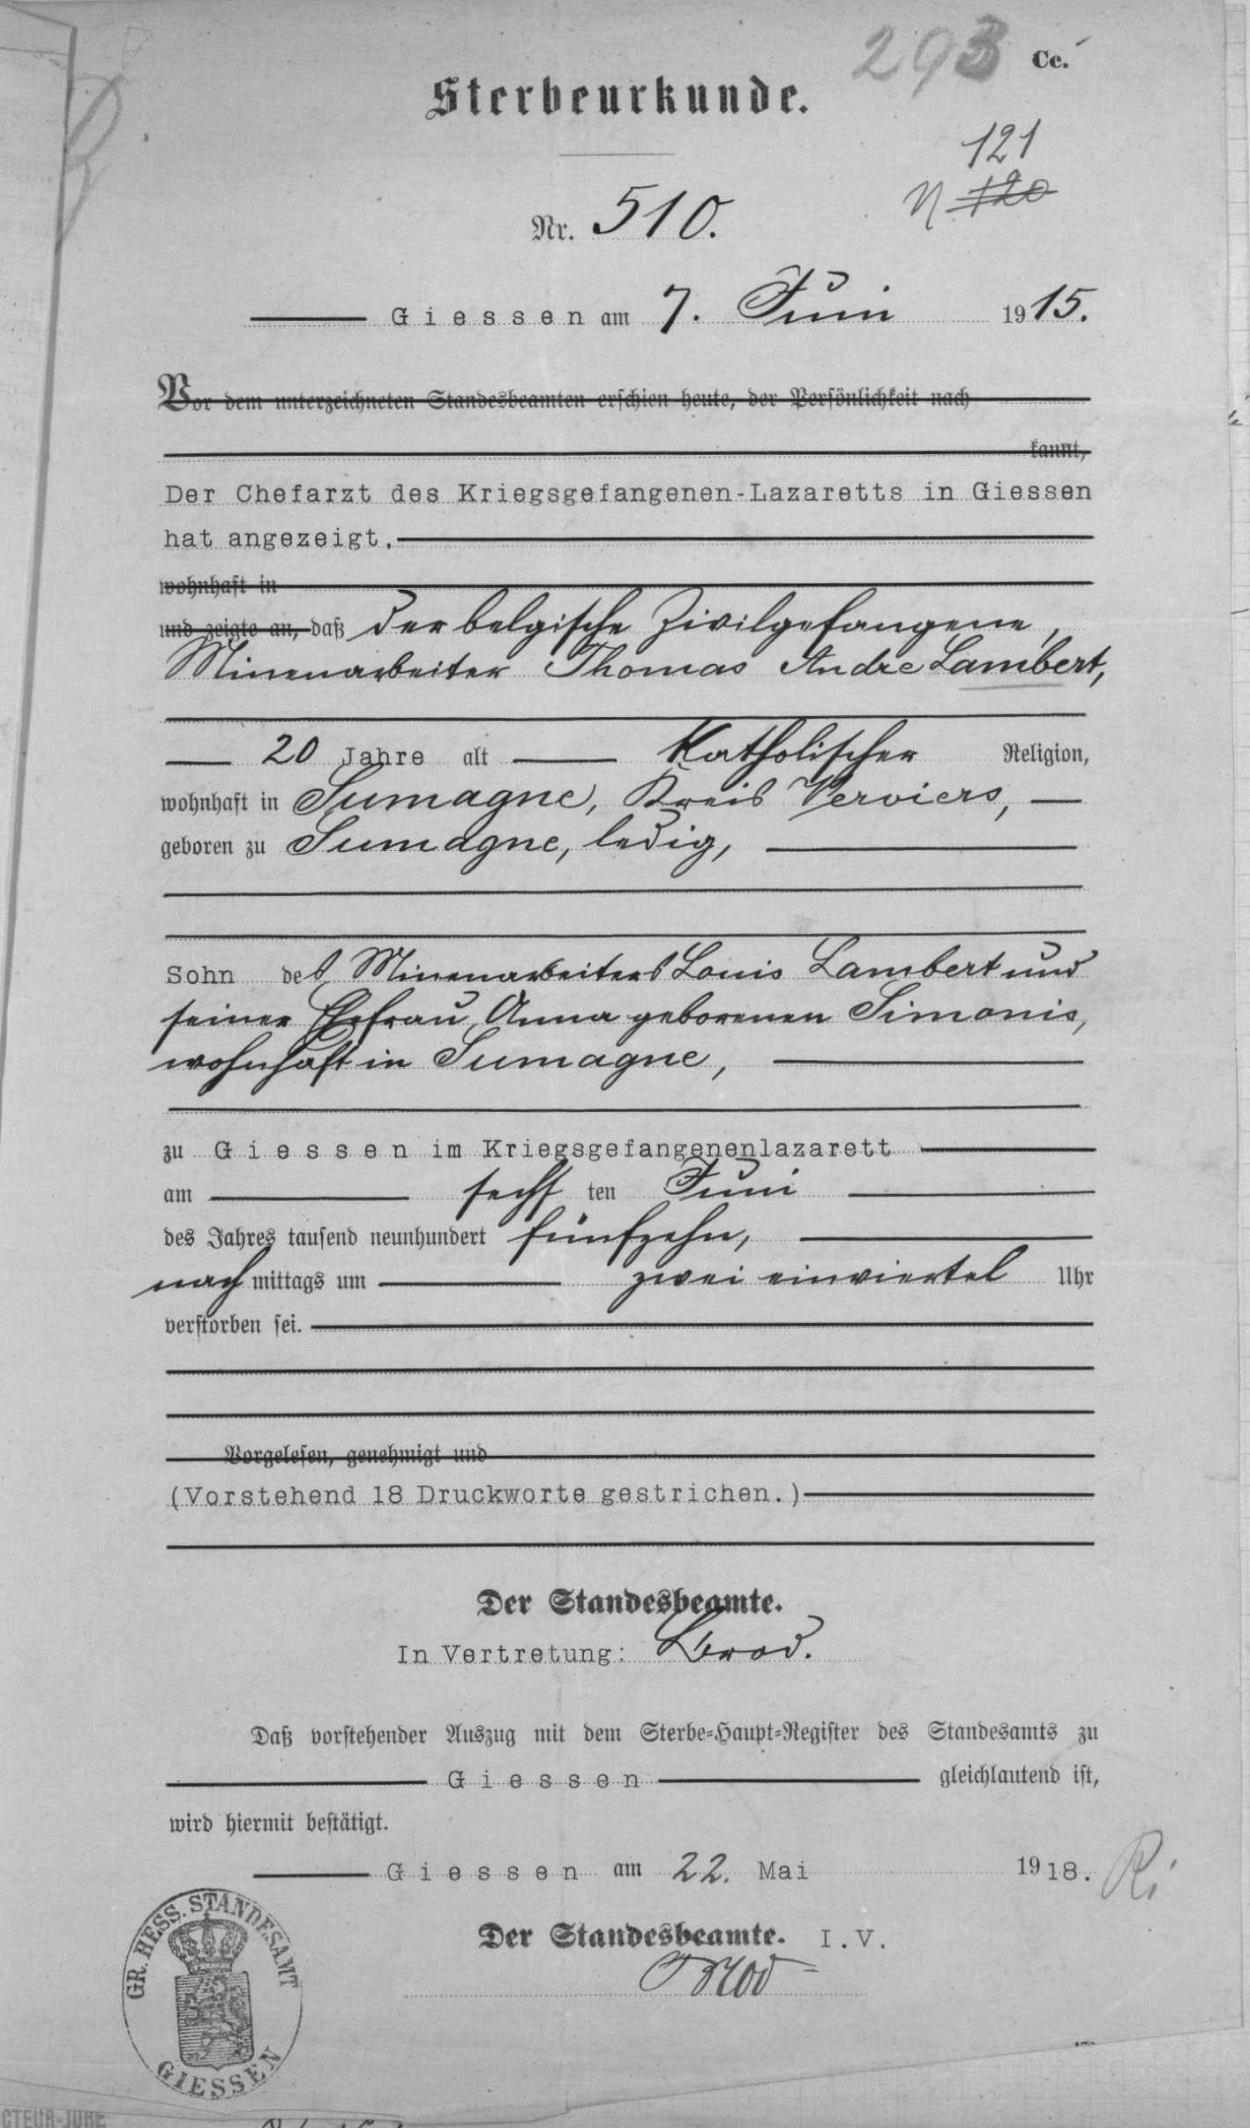 293 Cc.
Sterbeurkunde.
121
N 120
Nr. 510.
Giessen am 7. Juni 1915.
Vor dem unterzeichneten Standesbeamten erschien heute, der Persönlichkeit nach
kannt,
Der Chefarzt des Kriegsgefangenen-Lazaretts in Giessen
hat angezeigt,
wohnhaft in
und zeigte an, daß der belgische Zivilgefangene,
Minenarbeiter Thomas Andre Lambert,
20 Jahre alt Katholischer Religion,
wohnhaft in Sumagne, Kreis Verviers,
geboren zu Sumagne, ledig,
Sohn des Minenarbeiters Louis Lambert und
seiner Ehefrau Anna geborenen Simonis,
wohnhaft in Sumagne,
zu Giessen im Kriegsgefangenenlazarett
am sechsten Juni
des Jahres tausend neunhundert fünfzehn,
nachmittags um zwei einviertel Uhr
verstorben sei.
Vorgelesen, genehmigt und
(Vorstehend 18 Druckworte gestrichen.)
Der Standesbeamte.
In Vertretung:
Daß vorstehender Auszug mit dem Sterbe-Haupt-Register des Standesamts zu
Giessen gleichlautend ist,
wird hiermit bestätigt.
Giessen am 22. Mai 1918. Ri
Der Standesbeamte. I.V.
GR. HESS. STANDESAMT
GIESSEN
CTEUR-JURE